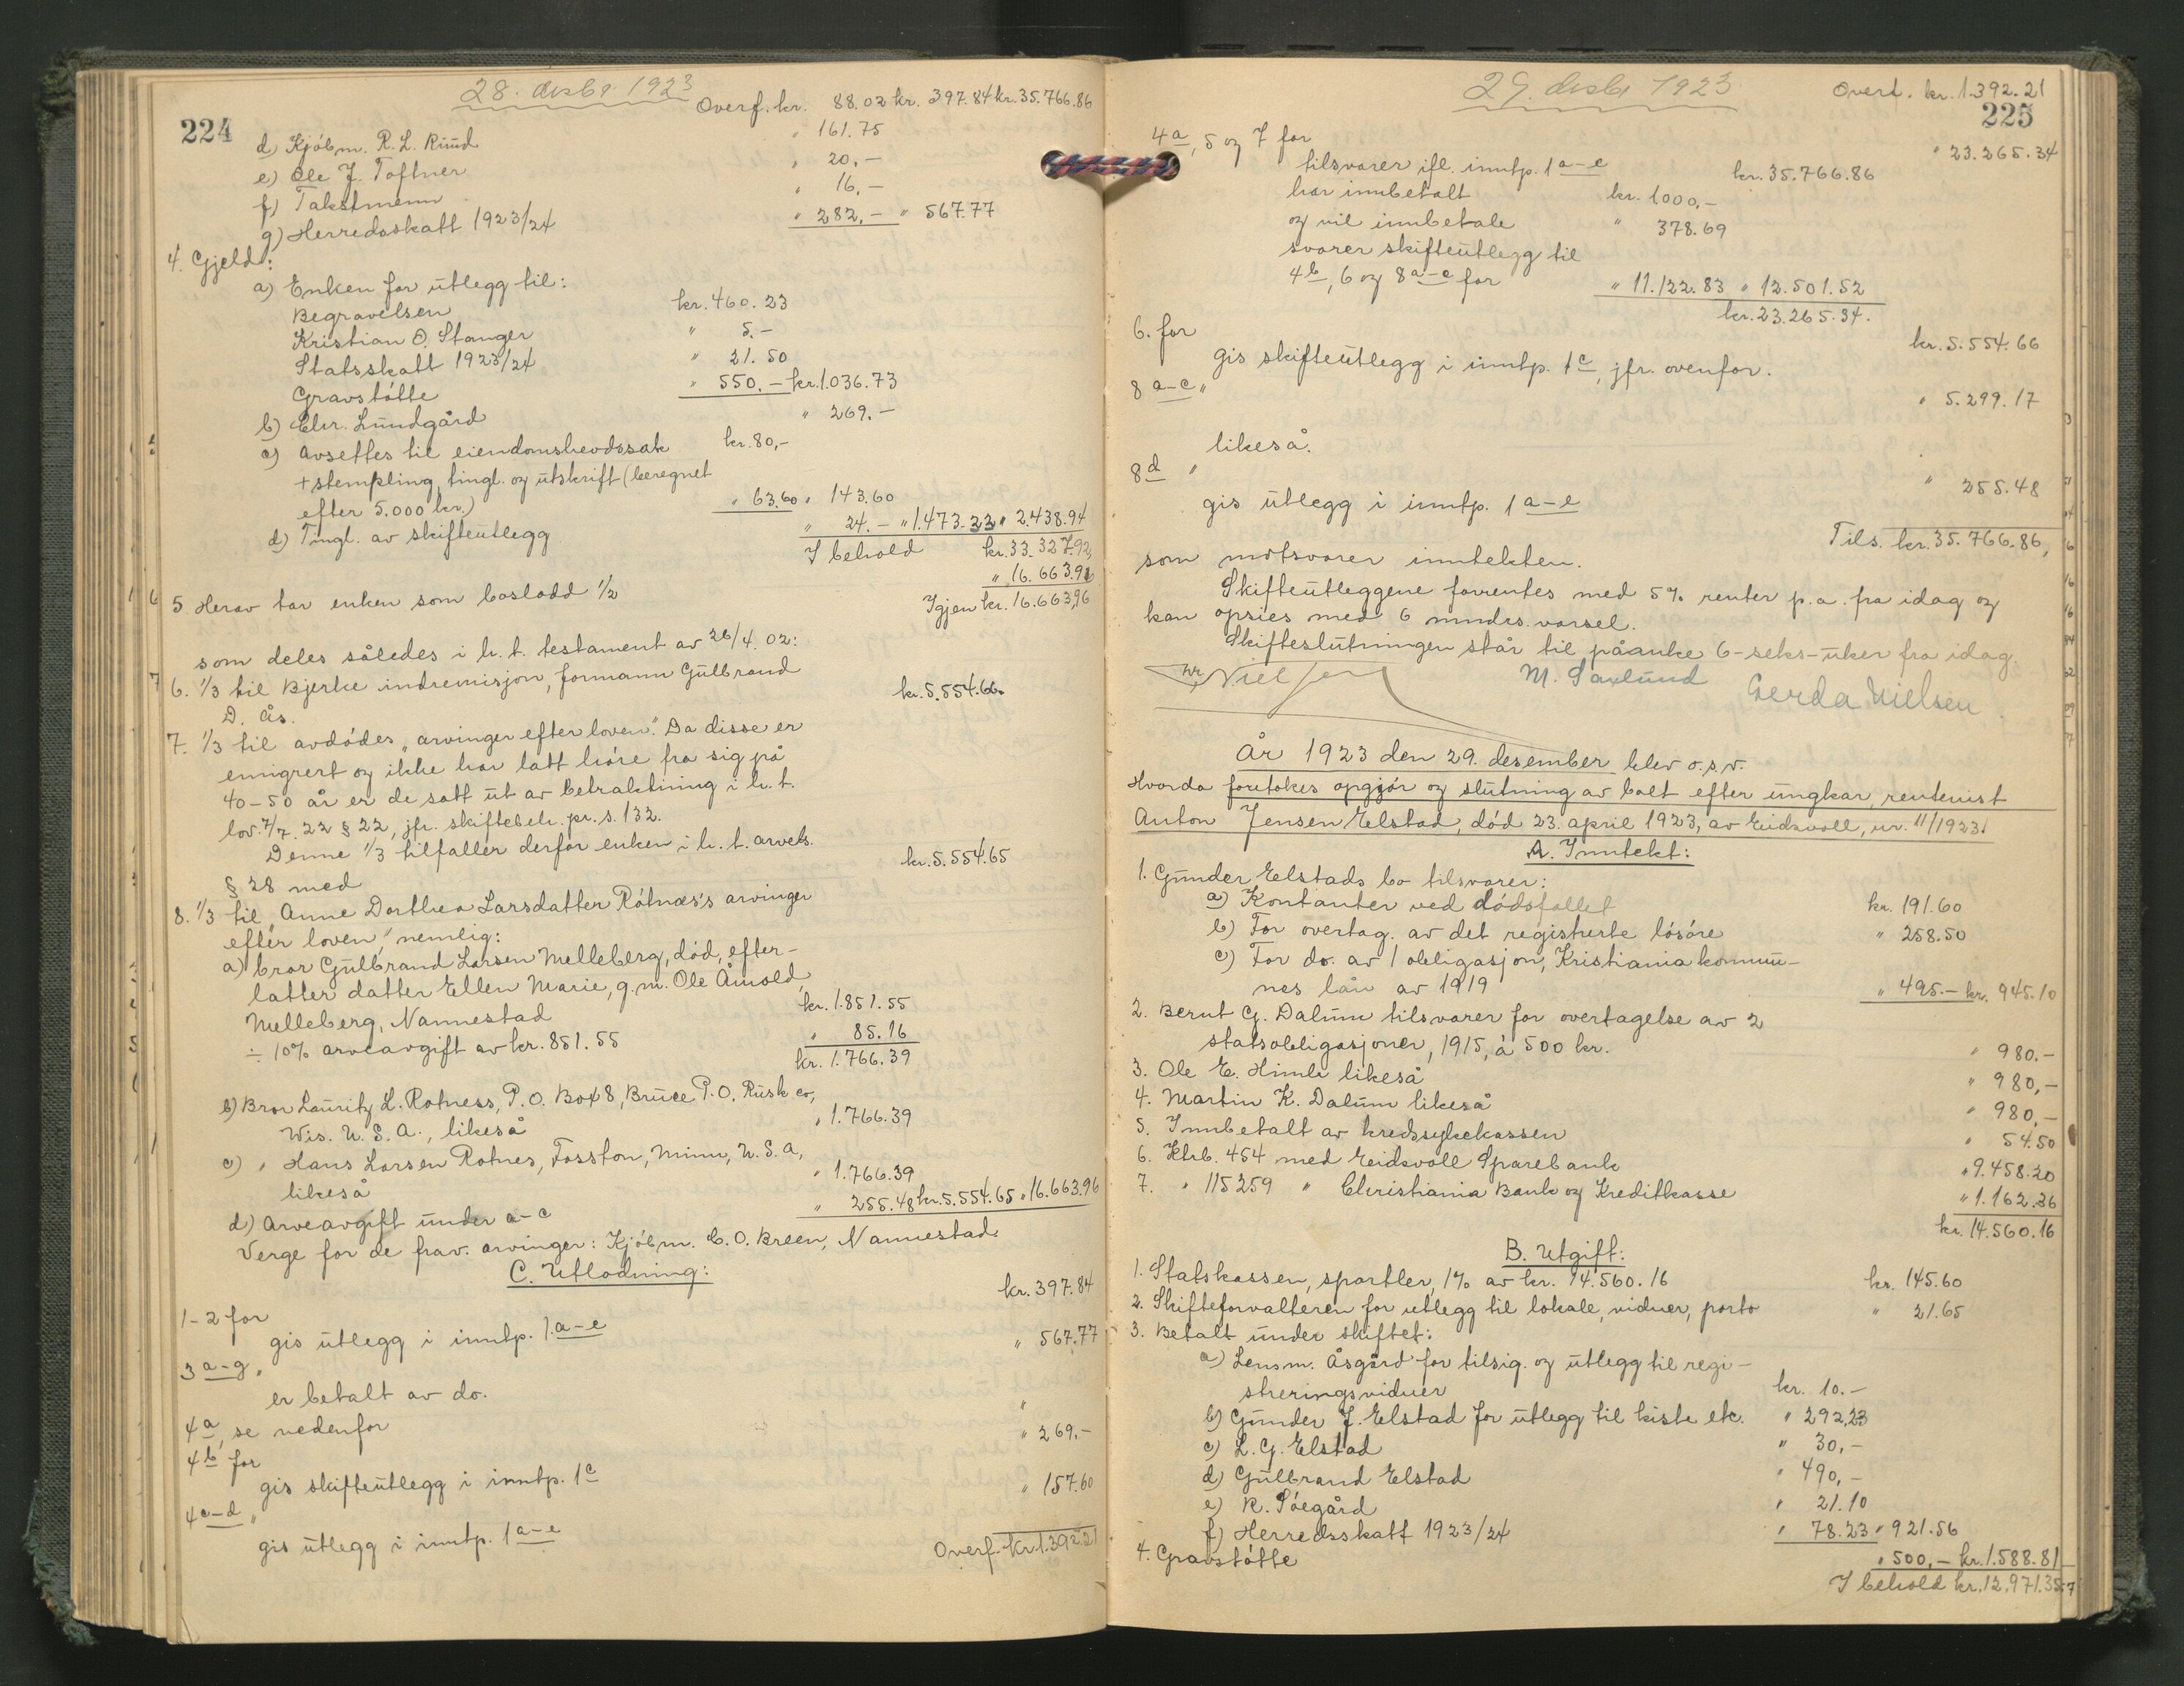 28. desbr 1923
Overf. kr. 88.02 kr. 397.84 kr. 35.766.86
224
d) Kjøbm. R. L. Ruud " 161.75
e) Ole J. Toftner " 20,-
f) Takstmenn " 16,-
g) Herredsskatt 1923/24 " 282,- " 567.77
4. Gjeld:
a) Enken for utlegg til:
Begravelsen kr. 460.23
Kristian O. Stanger " 5.-
Statsskatt 1923/24 " 21.50
Gravstøtte " 550.- kr. 1.036.73
b) Chr. Lundgård " 269.-
c) Avsettes til eiendomshevdssak kr. 80,-
+ stempling, tingl. og utskrift (beregnet
efter 5.000 kr.) " 63.60 " 143.60
d) Tingl. av skifteutlegg " 24.- " 1.473.33 " 2.438.94
I behold kr. 33.327.92,
5. Herav tar enken som boslodd 1/2 " 16.663.96
Igjen kr. 16.663,96
som deles således i h. t. testament av 26/4.02:
6. 1/3 til Bjerke indremisjon, formann Gulbrand
D. Ås. kr. 5.554.66.
7. 1/3 til avdødes "arvinger efter loven". Da disse er
emigrert og ikke har latt høre fra sig på
40-50 år er de satt ut av betraktning i h. t.
lov. 7/7.22 § 22, jfr. skiftebeh. pr. s. 132.
Denne 1/3 tilfaller derfor enken i h. t. arvels.
§ 28 med kr. 5.554.65
8. 1/3 til "Anne Dorthea Larsdatter Røtnæs's arvinger
efter loven", nemlig:
a) bror Gulbrand Larsen Melleberg, død, efter-
latter datter Ellen Marie, g.m. Ole Åmold,
Melleberg, Nannestad kr. 1.851.55
÷ 10% arveavgift av kr. 851.55 " 85.16
kr. 1.766.39
b) Bror Lauritz L. Rotness, P.O. Box 8, Bruce P.O. Rusk co,
Wis. U.S.A., likeså " 1.766.39
c) " Hans Larsen Rotnes, Fosston, Minn, U.S.A,
likeså " 1.766.39
d) Arveavgift under a-c " 255.48 kr. 5.554.65 " 16.663.96
Verge for de frav. arvinger: Kjøbm. C. O. Breen, Nannestad.
C. Utlodning:
1-2 for kr. 397.84
gis utlegg i inntp. 1.a-e
3 a-g " " 567.77
er betalt av do.
4a, se nedenfor "
4b for " 269.-
gis skifteutlegg i inntp. 1c
4c-d " " 157.60
gis utlegg i inntp. 1a-e
Overf. kr. 1.392.21
29. desbr 1923.
Overf. kr. 1.392.21
225
4a, 5 og 7 for " 23.265.34
tilsvarer ifl. inntp. 1a-e kr. 35.766.86
har innbetalt kr. 1000,-
og vil innbetale " 378.69
svarer skifteutlegg til
4b, 6 og 8a-c for " 11.122.83 " 12.501.52
kr. 23.265.34.
6. for kr. 5.554.66
gis skifteutlegg i inntp. 1c, jfr. ovenfor.
8 a-c " " 5.299.17
likeså.
8d " " 255.48
gis utlegg i inntp. 1a-e
Tils. kr. 35.766.86,
som motsvarer inntekten.
Skifteutleggene forrentes med 5% renter p.a. fra idag og
kan opsies med 6 mndrs. varsel.
Skifteslutningen står til påanke 6-seks-uker fra idag.
Nielsen M. Saxlund Gerda Nielsen
År 1923 den 29. desember blev o.s.v.
Hvorda foretokes opgjør og slutning av boet efter ungkar, rentenist
Anton Jensen Elstad, død 23. april 1923, av Eidsvoll, nr. 11/1923.
A. Inntekt:
1. Gunder Elstads bo tilsvarer:
a) Kontanter ved dødsfallet kr. 191.60
b) For overtag. av det registrerte løsøre " 258.50
c) For do. av 1 obligasjon, Kristiania kommu-
nes lån av 1919 " 495.- kr. 945.10
2. Bernt G. Dalum tilsvarer for overtagelse av 2
statsobligasjoner, 1915, á 500 kr. " 980.-
3. Ole E. Himle likeså " 980,-
4. Martin K. Dalum likeså " 980,-
5. Innbetalt av kredssykekassen " 54.50
6. Ktrb. 454 med Eidsvoll Sparebank " 9.458.20
7. " 115259 " Christiania Bank og Kreditkasse " 1.162.36
kr. 14.560.16
B. Utgift:
1. Statskassen, sportler, 1% av kr. 14.560.16 kr. 145.60
2. Skifteforvalteren for utlegg til lokale, vidner, porto " 21.65
3. Betalt under skiftet:
a) Lensm. Åsgård for tilsig. og utlegg til regi-
streringsvidner kr. 10.-
b) Gunder J. Elstad for utlegg til kiste etc. " 292,23
c) L. G. Elstad " 30,-
d) Gulbrand Elstad " 490,-
e) R. Søegård " 21.10
f) Herredsskatt 1923/24 " 78.23 " 921.56
4. Gravstøtte " 500,- kr. 1.588.81
I behold kr. 12.971.35